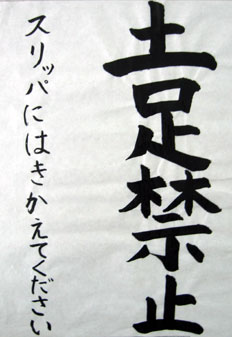 土足禁止
スリッパにはきかえてください